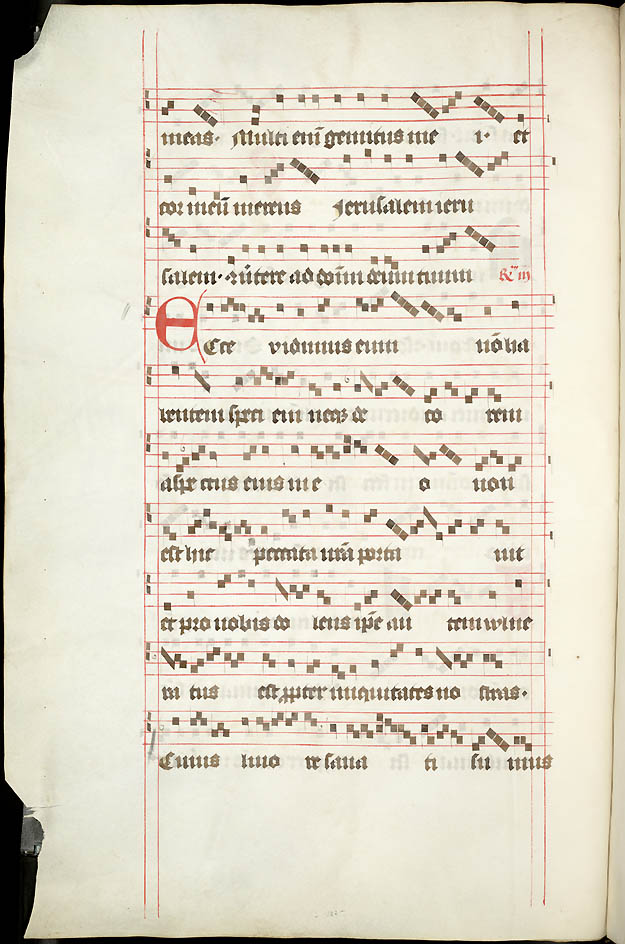 meas · Multi enī gemitus me i · et
cor meū merens Jerusalem ieru
salem · ꝯūtere ad dnm̄ deum tuum
Ecce vidimus eum nō ha
bentem speciē neqꝫ de co rem
aspectus eius in e o non
est hic peccata nr̄a porta uit
et pro nobis do lens ip̄e au tem vulne
ra tus est ꝓpter iniquitates no stras ·
Cuius liuo re sana ti su mus